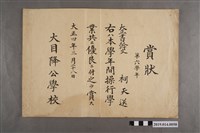 賞狀
第六學年
柯天送
右ハ本學年間操行學
業共ニ優良ニ付之ヲ賞ス
大正四年三月二十八日
大目降公學校